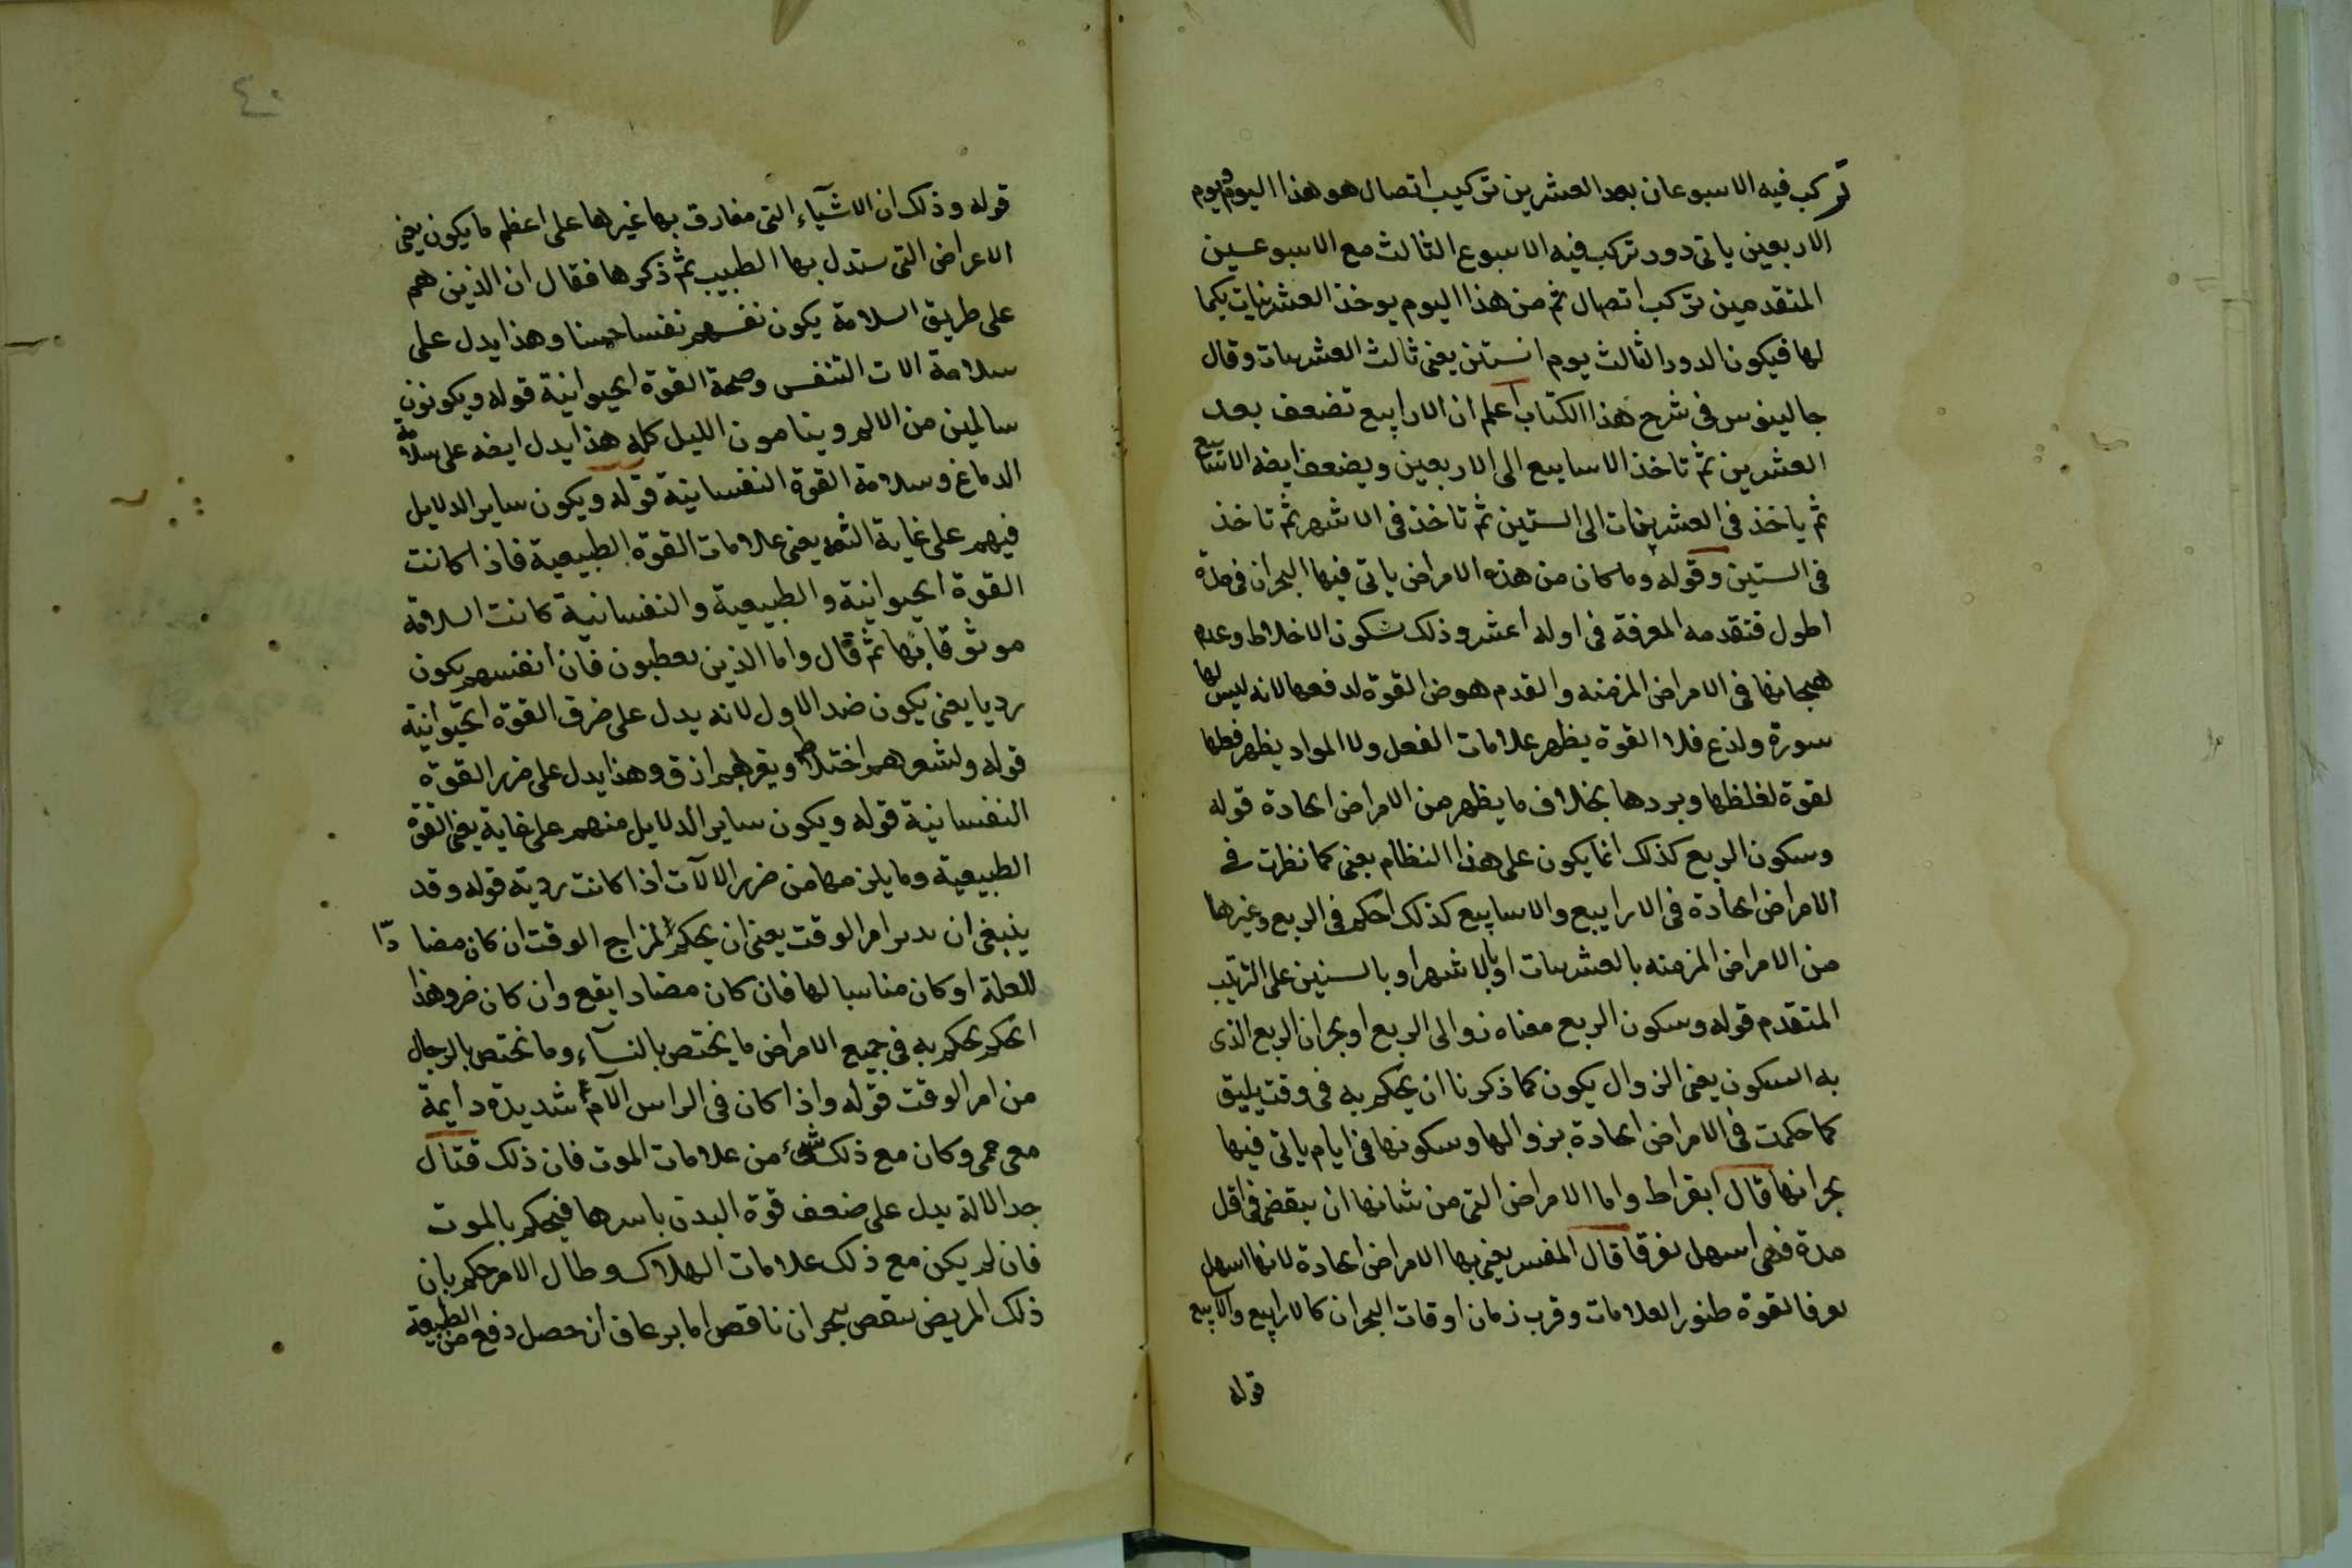 تركب فيه الاسبوعان بعد العشرين تركيب اتصال هو هذا اليوم ويوم
الاربعين ياتى دور تركب فيه الاسبوع الثالث مع الاسبوعين
المتقدمين تركب اتصال ثم من هذا اليوم يوخذ العشرينات
لها فيكون الدور الثالث يوم الستين يعنى ثالث العشرينات وقال
جالينوس فى شرح هذا الكتاب اعلم ان الارابيع تضعف بعد
العشرين ثم تاخذ الاسابيع الى الاربعين ويضعف ايضه الاسابيع
ثم ياخذ فى العشرينات الى الستين ثم تاخذ فى الاشهر ثم تاخذ
فى السنين وقوله وما كان من هذه الامراض ياتى فيها البحران فى مدة
اطول فتقدمه المعرفة فى اوله اعسر وذلك لسكون الاخلاط وعدم
هيجانها فى الامراض المزمنه والقدم هوض القوة لدفعها لانه ليس لها
سورة ولذع فلا القوة يظهر علامات الفعل ولا المواد يظهر فعلها
لقوة لغلظها وبردها بخلاف ما يظهر من الامراض الحادة قوله
وسكون الربع كذلك انما يكون على هذا النظام يعنى كما نظرت فى
الامراض الحادة فى الارابيع والاسابيع كذلك احكم فى الربع وغيرها
من الامراض المزمنه بالعشرينات او بالاشهر او بالسنين على الترتيب
المتقدم قوله وسكون الربع معناه زوالى الربع او بحران الربع الذى
به السكون يعنى الزوال يكون كما ذكرنا ان يحكم به فى وقت يليق
كما حكمت فى الامراض الحادة بزوالها وسكونها فى ايام ياتى فيها
بحرانها قال ابقراط واما الامراض التى من شانها ان ينقضى فى اقل
مدة فهى اسهل تعرفا قال المفسر يعنى بها الامراض الحادة لانها اسهل
تعرفا لقوة ظهور العلامات وقرب زمان اوقات البحران كالارابيع والاسابيع
قوله
٤٠
قوله وذلك ان الاشيآء التى مفارق بها غيرها على اعظم ما يكون يعنى
الاعراض التى ستدل بها الطبيب ثم ذكرها فقال ان الذين هم
على طريق السلامة يكون نفسهم نفسا حسنا وهذا يدل على
سلامة الات التنفس وصحة القوة الحيوانية قوله ويكونون
سالمين من الالم وينامون الليل كله هذا يدل ايضه على سلامة
الدماغ وسلامة القوة النفسانية قوله ويكون ساير الدلايل
فيهم على غاية الثقه يعنى علامات القوة الطبيعية فاذا كانت
القوة الحيوانية والطبيعية والنفسانية كانت السلامة
موثوقا بها ثم قال واما الذين يعطبون فان انفسهم يكون
رديا يعنى يكون ضد الاول لانه يدل على ضرق القوة الحيوانية
قوله ولشعرهم اختلاط ويعرهم ارق وهذا يدل على ضرر القوة
النفسانية قوله ويكون ساير الدلايل منهم على غاية يعنى القوة
الطبيعية وما يلزمها من ضرر الالآت اذا كانت ردية قوله وقد
ينبغى ان يدبر امر الوقت يعنى ان يحكم لمزاج الوقت ان كان مضادّا
للعلة او كان مناسبا لها فان كان مضادا يقع وان كان ضر وهذا
الحكم يحكم به فى جميع الامراض ما يختص بالنسآء وما تختص بالرجال
من امر الوقت قوله واذا كان فى الراس الآم شديدة دايمة
مع حمى وكان مع ذلك شئ من علامات الموت فان ذلك قتال
جدا لالة يدل على ضعف قوة البدن باسرها فيحكم بالموت
فان لم يكن مع ذلك علامات الهلاك وطال الامر حكم بان
ذلك المريض ببحران ناقص اما برعاف ان حصل دفع من الطبيعة